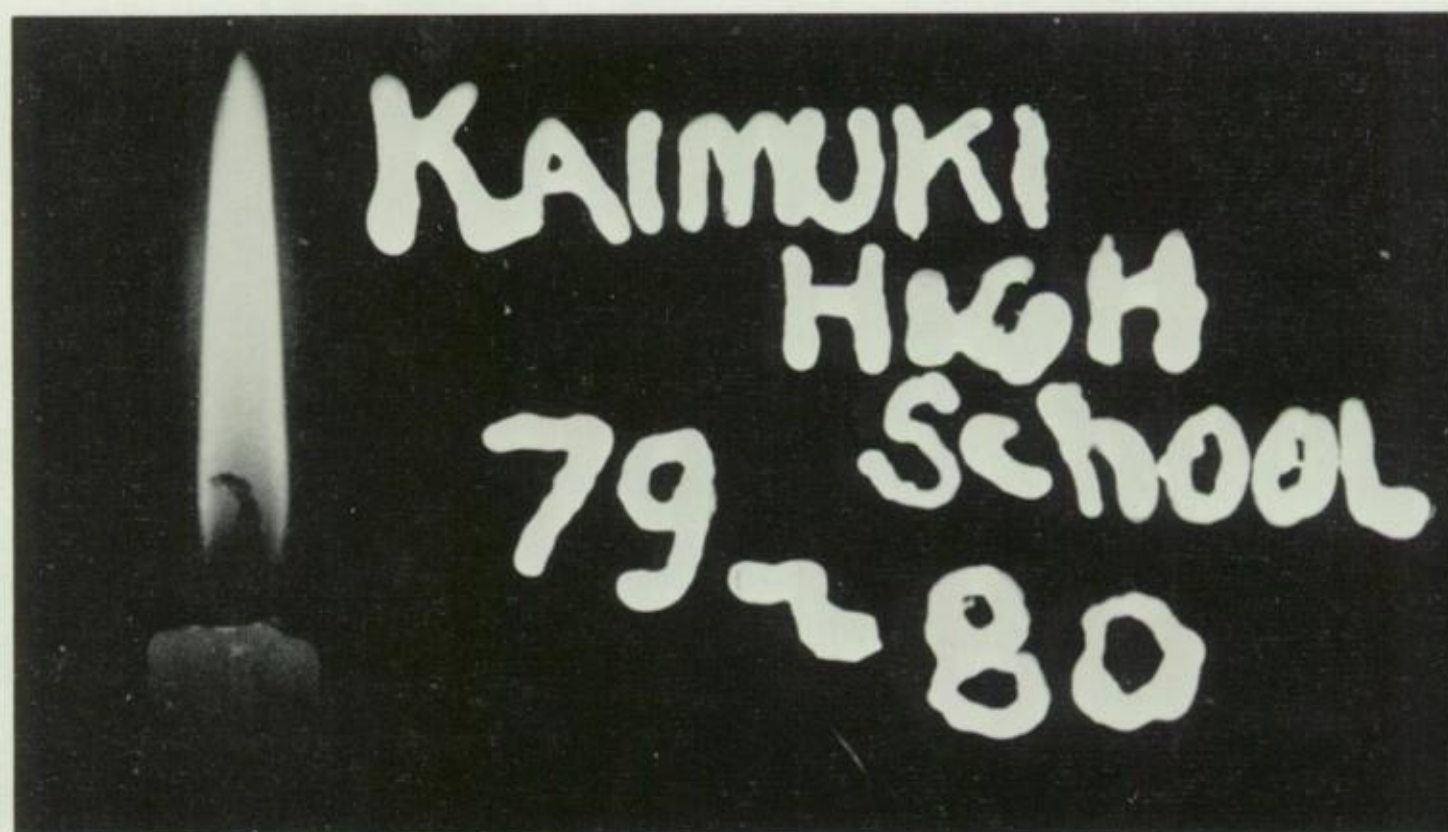 KAIMUKI
HIGH
SchOOL
79~80